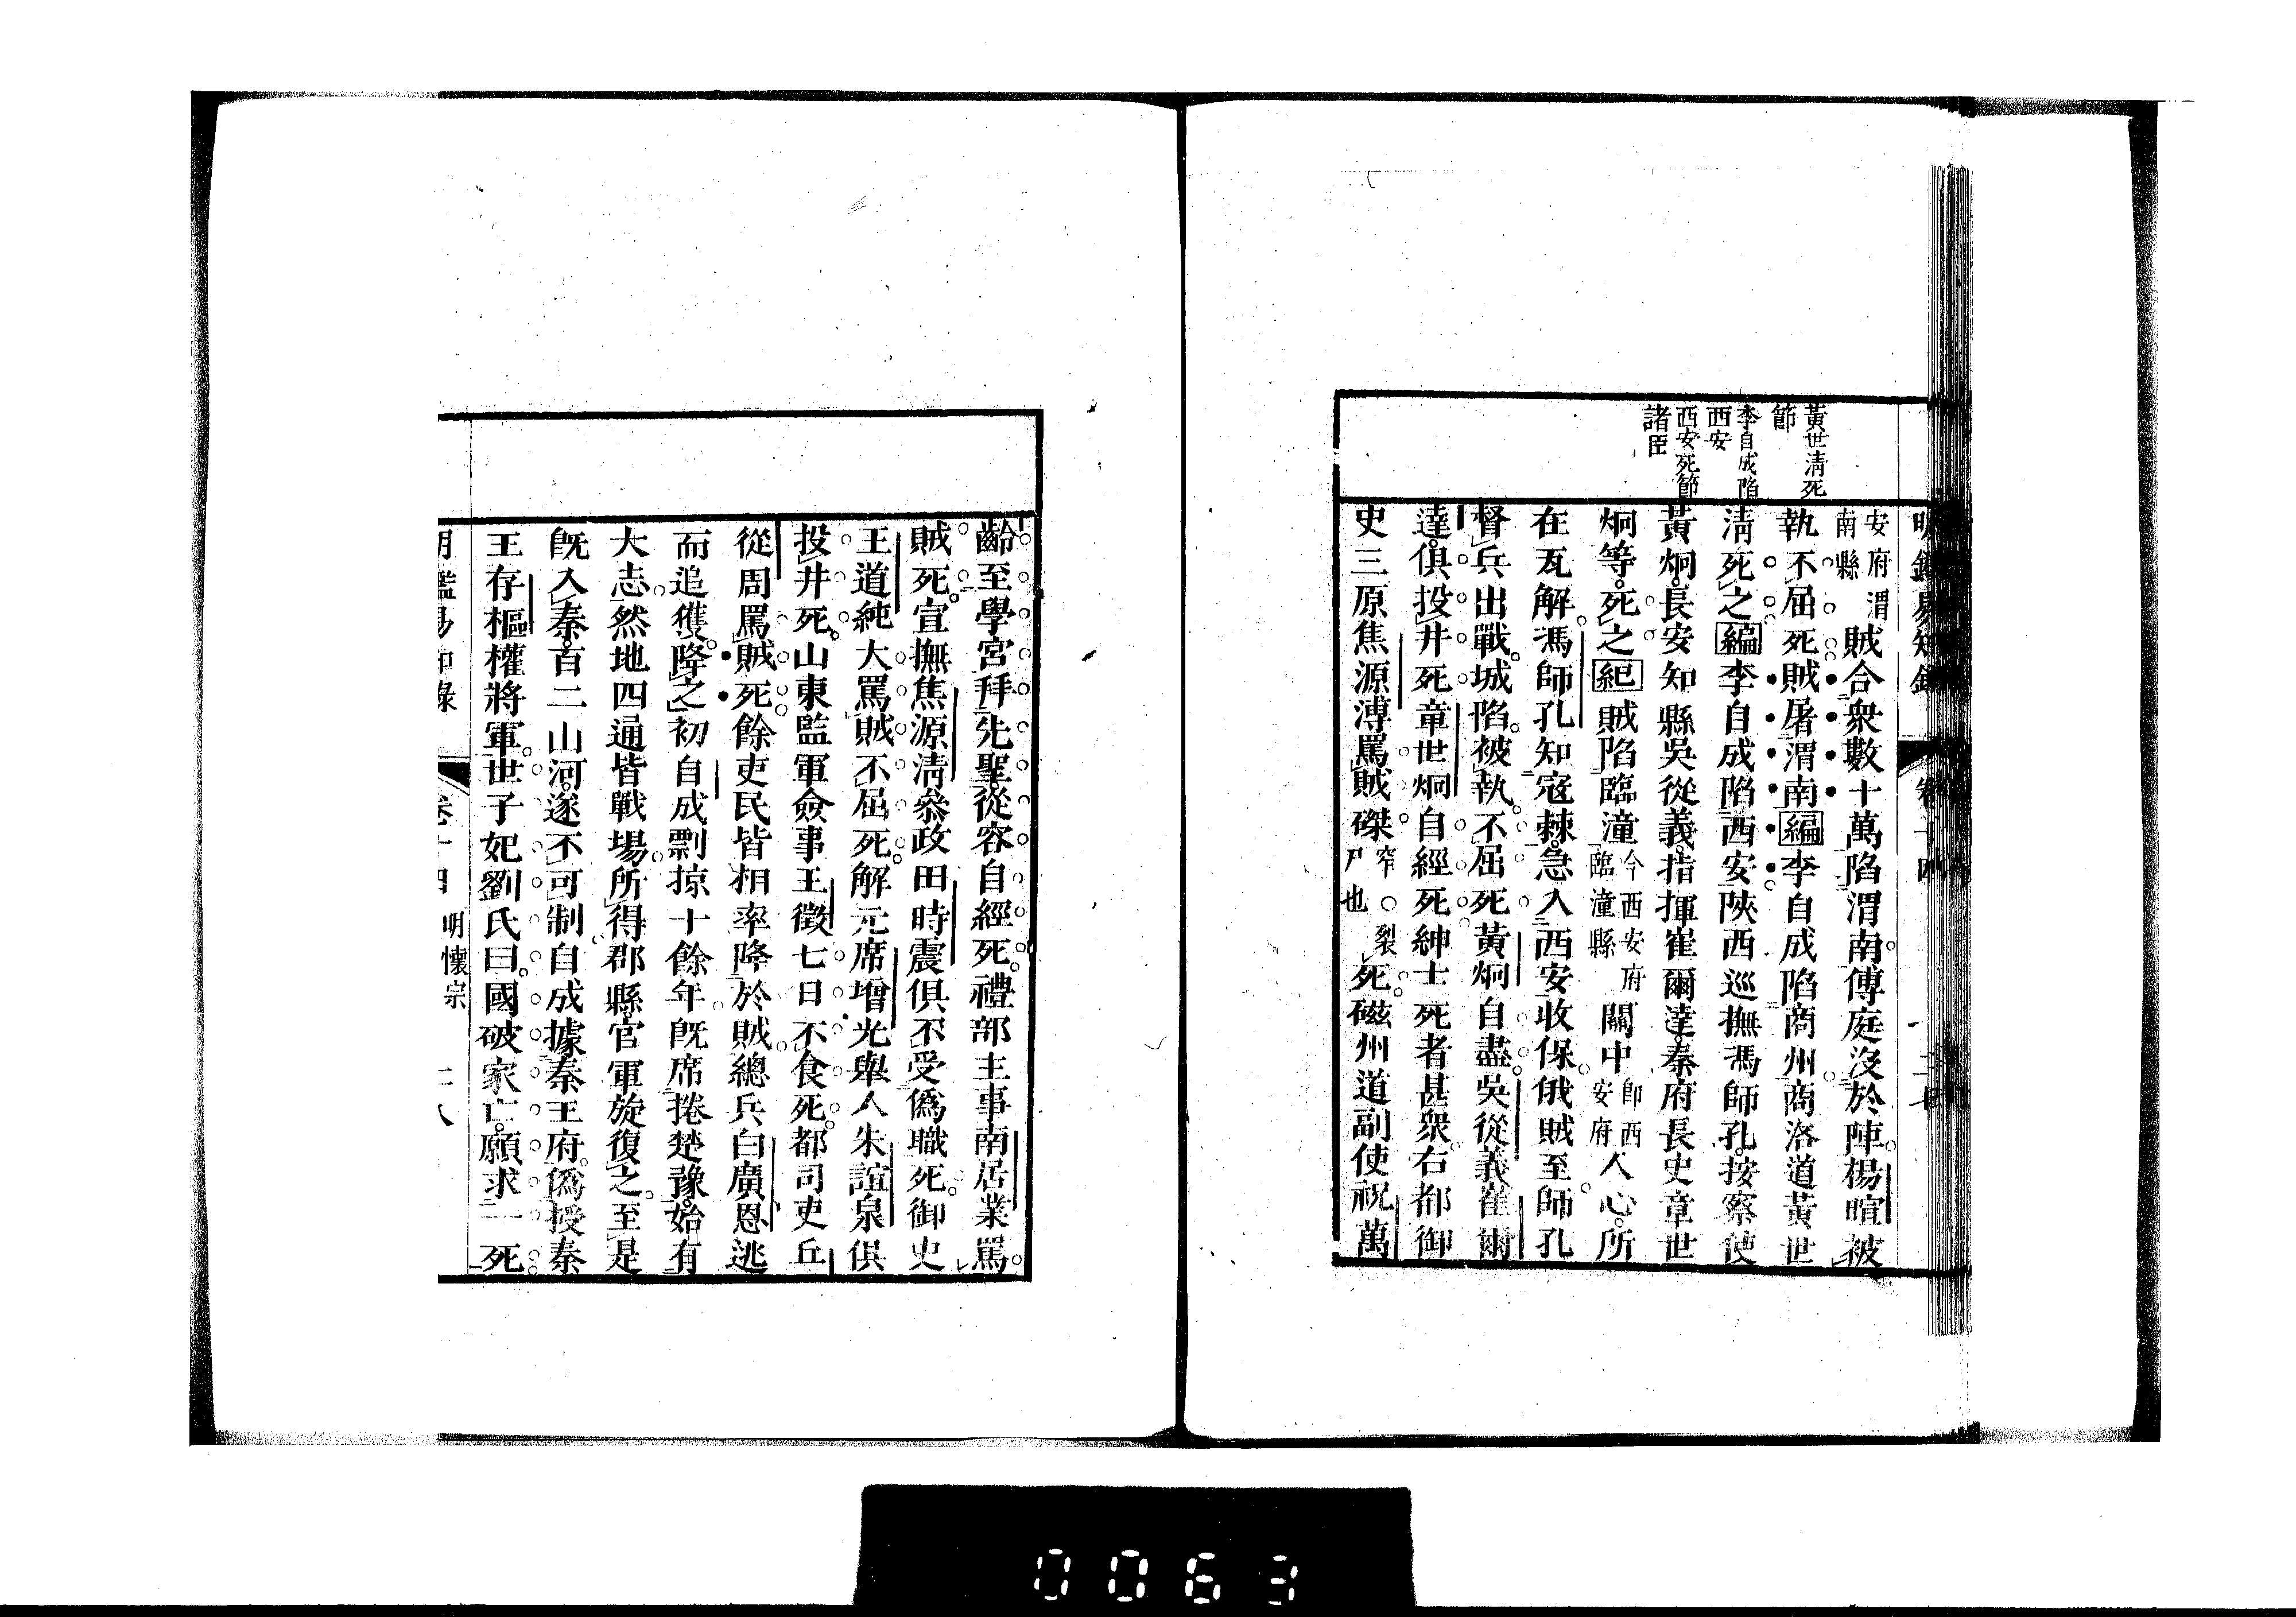 黃世淸死
節
李自成陷
西安
西安死節
諸臣
安府渭
南縣
賊合衆數十萬陷渭南傅庭沒於陣楊暄被
執不屈死賊屠渭南編李自成陷商州商洛道黃世
淸死之編李自成陷西安陜西巡撫馮師孔按察使
黃炯長安知縣吳從義指揮崔爾達秦府長史章世
炯等死之紀賊陷臨潼
今西安府
臨潼縣
關中
卽西
安府
人心所
在瓦解馮師孔知寇棘急入西安收保俄賊至師孔
督兵出戰城陷被執不屈死黃炯自盡吳從義崔爾
達俱投井死章世炯自經死紳士死者甚衆右都御
史三原焦源溥罵賊磔
窄○裂
尸也
死磁州道副使祝萬
齡至學宮拜先聖從容自經死禮部主事南居業罵
賊死宣撫焦源淸叅政田時震俱不受僞職死御史
王道純大罵賊不屈死解元席增光舉人朱誼泉俱
投井死山東監軍僉事王徵七日不食死都司吏丘
從周罵賊死餘吏民皆相率降於賊總兵白廣恩逃
而追獲降之初自成剽掠十餘年旣席捲楚豫始有
大志然地四通皆戰場所得郡縣官軍旋復之至是
旣入秦百二山河遂不可制自成據秦王府僞授秦
王存樞權將軍世子妃劉氏曰國破家亡願求一死
卷十四
明懷宗
二八
0063